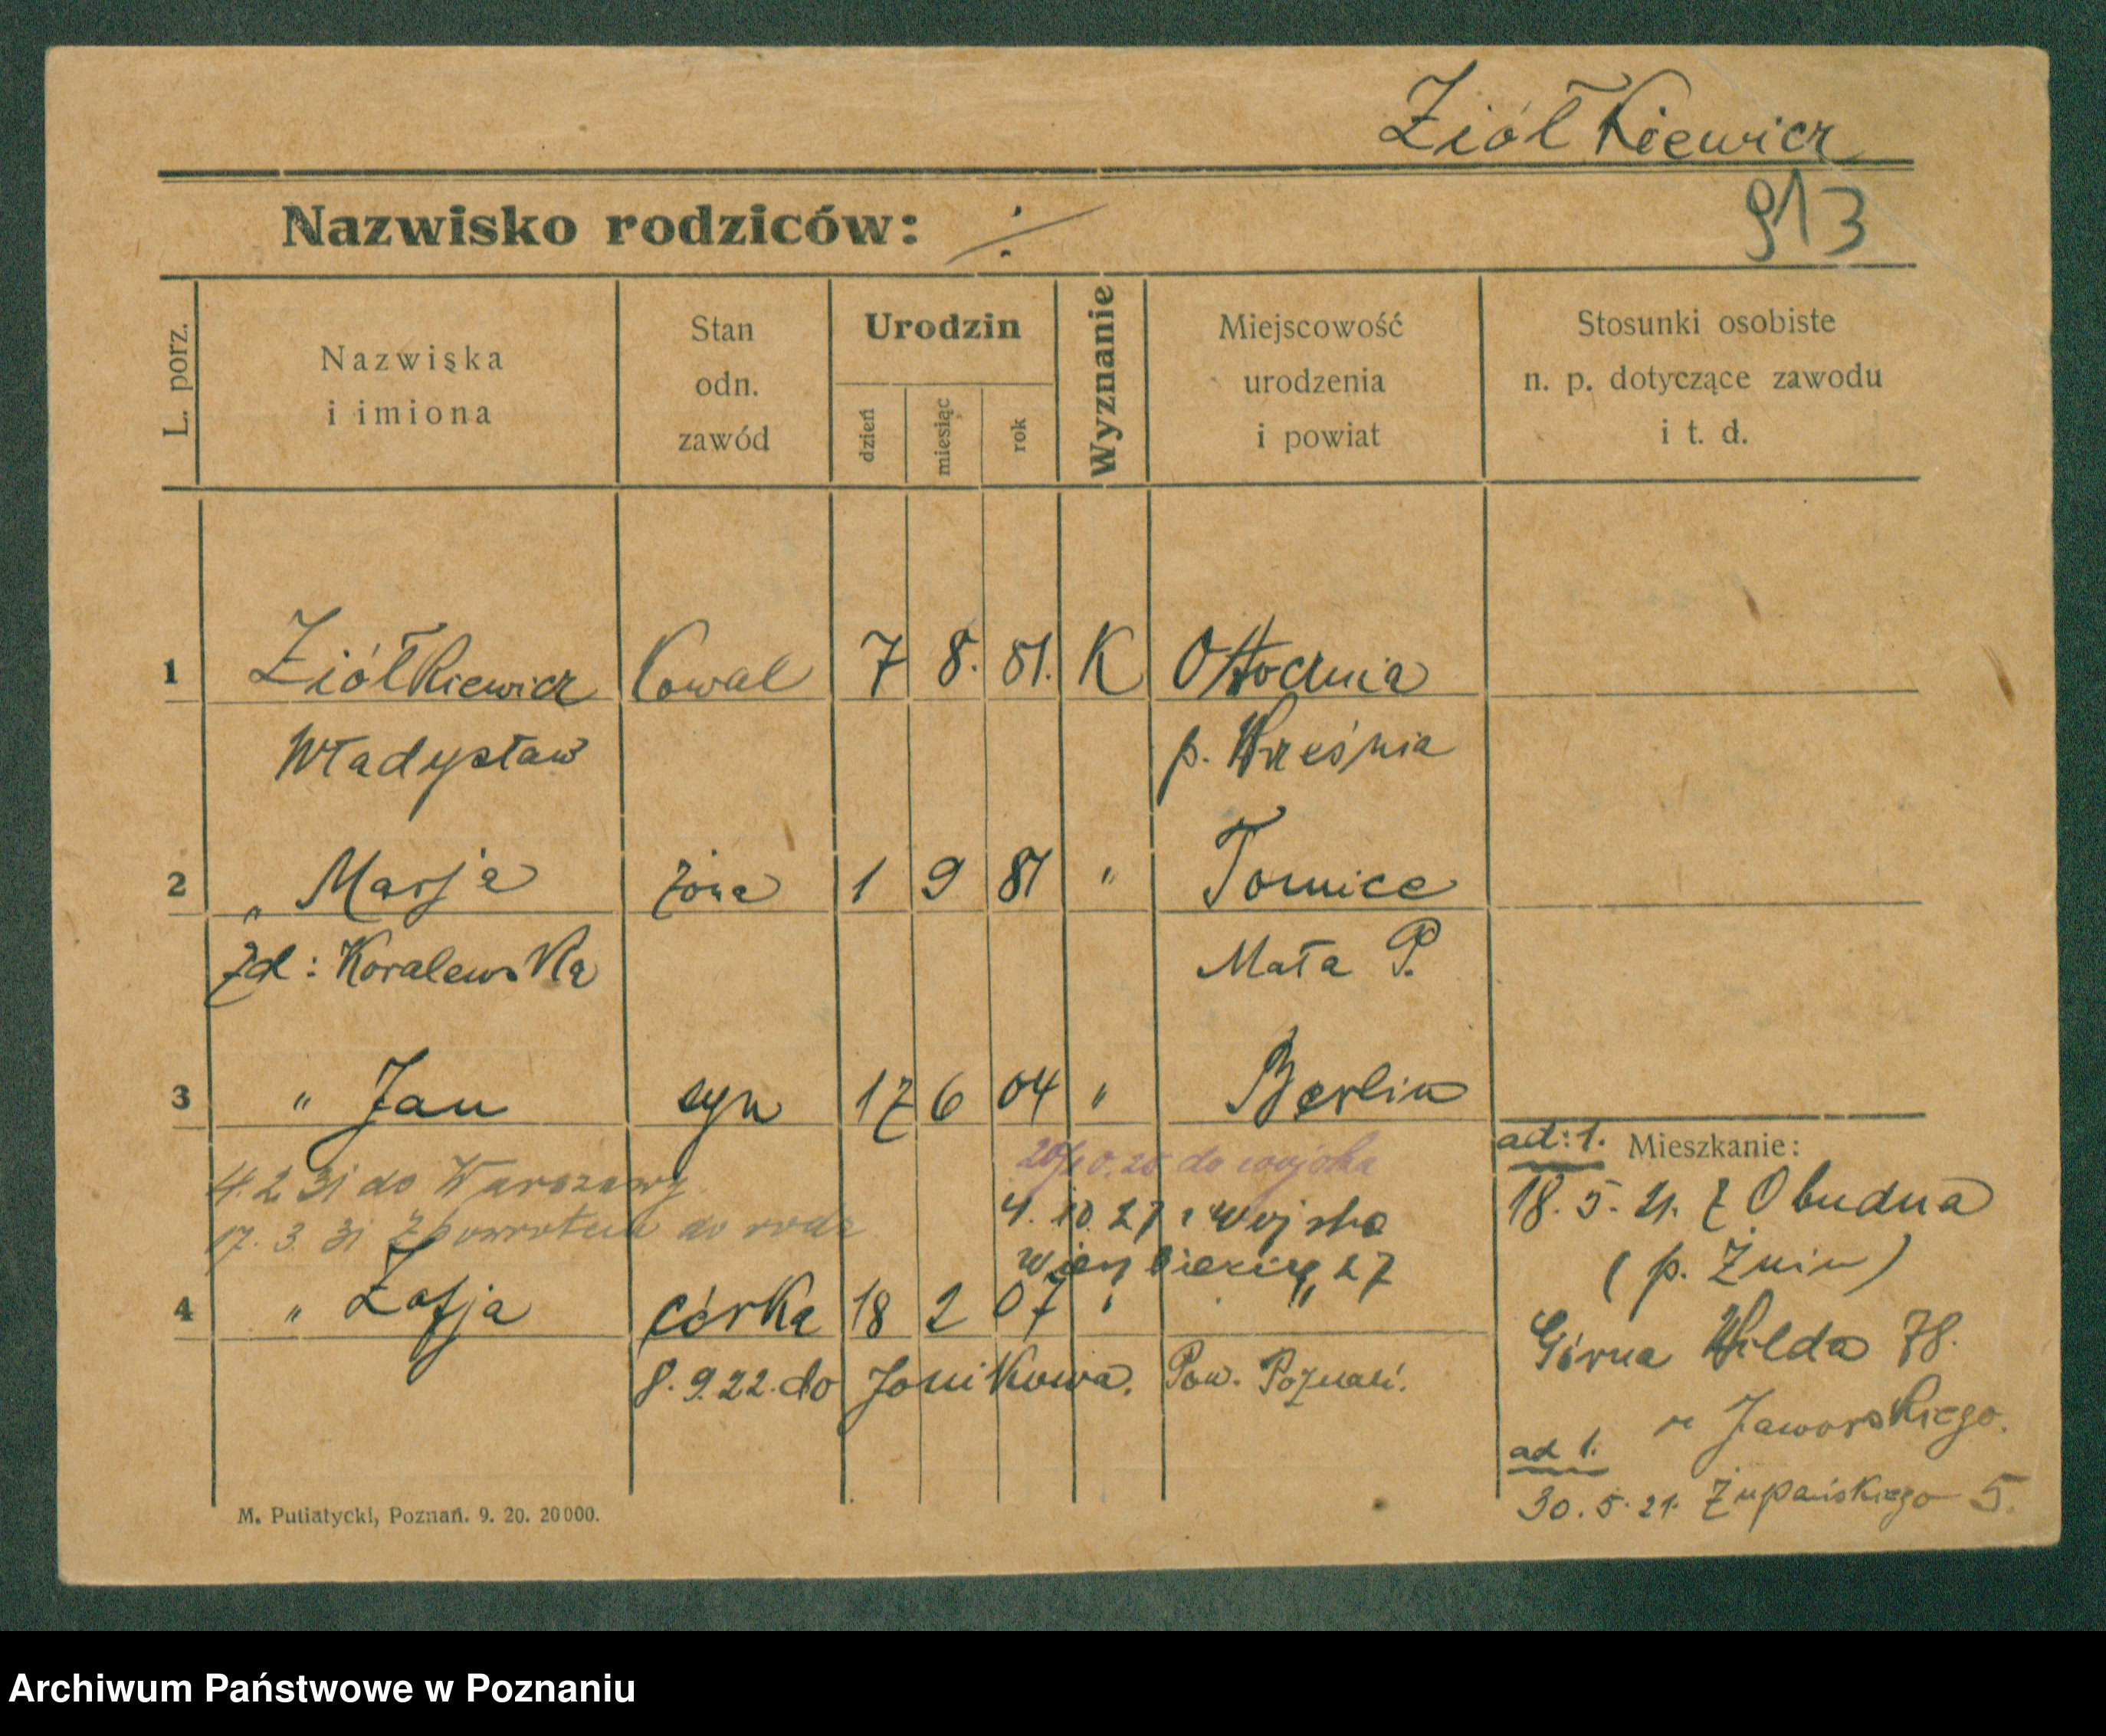 Ziółkiewicz
Nazwisko rodziców: ⁒
913
L. porz.
Nazwiska
i imiona
Stan
odn.
zawód
Urodzin
dzień
miesiąc
rok
Wyznanie
Miejscowość
urodzenia
i powiat
Stosunki osobiste
n. p. dotyczące zawodu
i t. d.
1 Ziółkiewicz Kowal 7 8. 81. K Otocznia
Władysław p. Września
2 „ Marja żona 1 9 81 " Tomice
zd: Koralewska Mała P.
3 " Jan syn 17 6 04 " Berlin
ad: 1. Mieszkanie:
4. 2 31 do Warszawy do wojska
18. 5. 21. z Obudna
17. 3. 31 z powrotem do rodz 4. 10. 27 z wojska
(p. Żnin)
27
4 " Zofja córka 18 2 07 " "
Górna Wilda 78.
8. 9. 22. do Junikowa. Pow. Poznań.
u Jaworskiego.
ad 1.
30. 5. 21. Żupańskiego 5.
M. Putiatycki, Poznań. 9. 20. 20000.
Archiwum Państwowe w Poznaniu